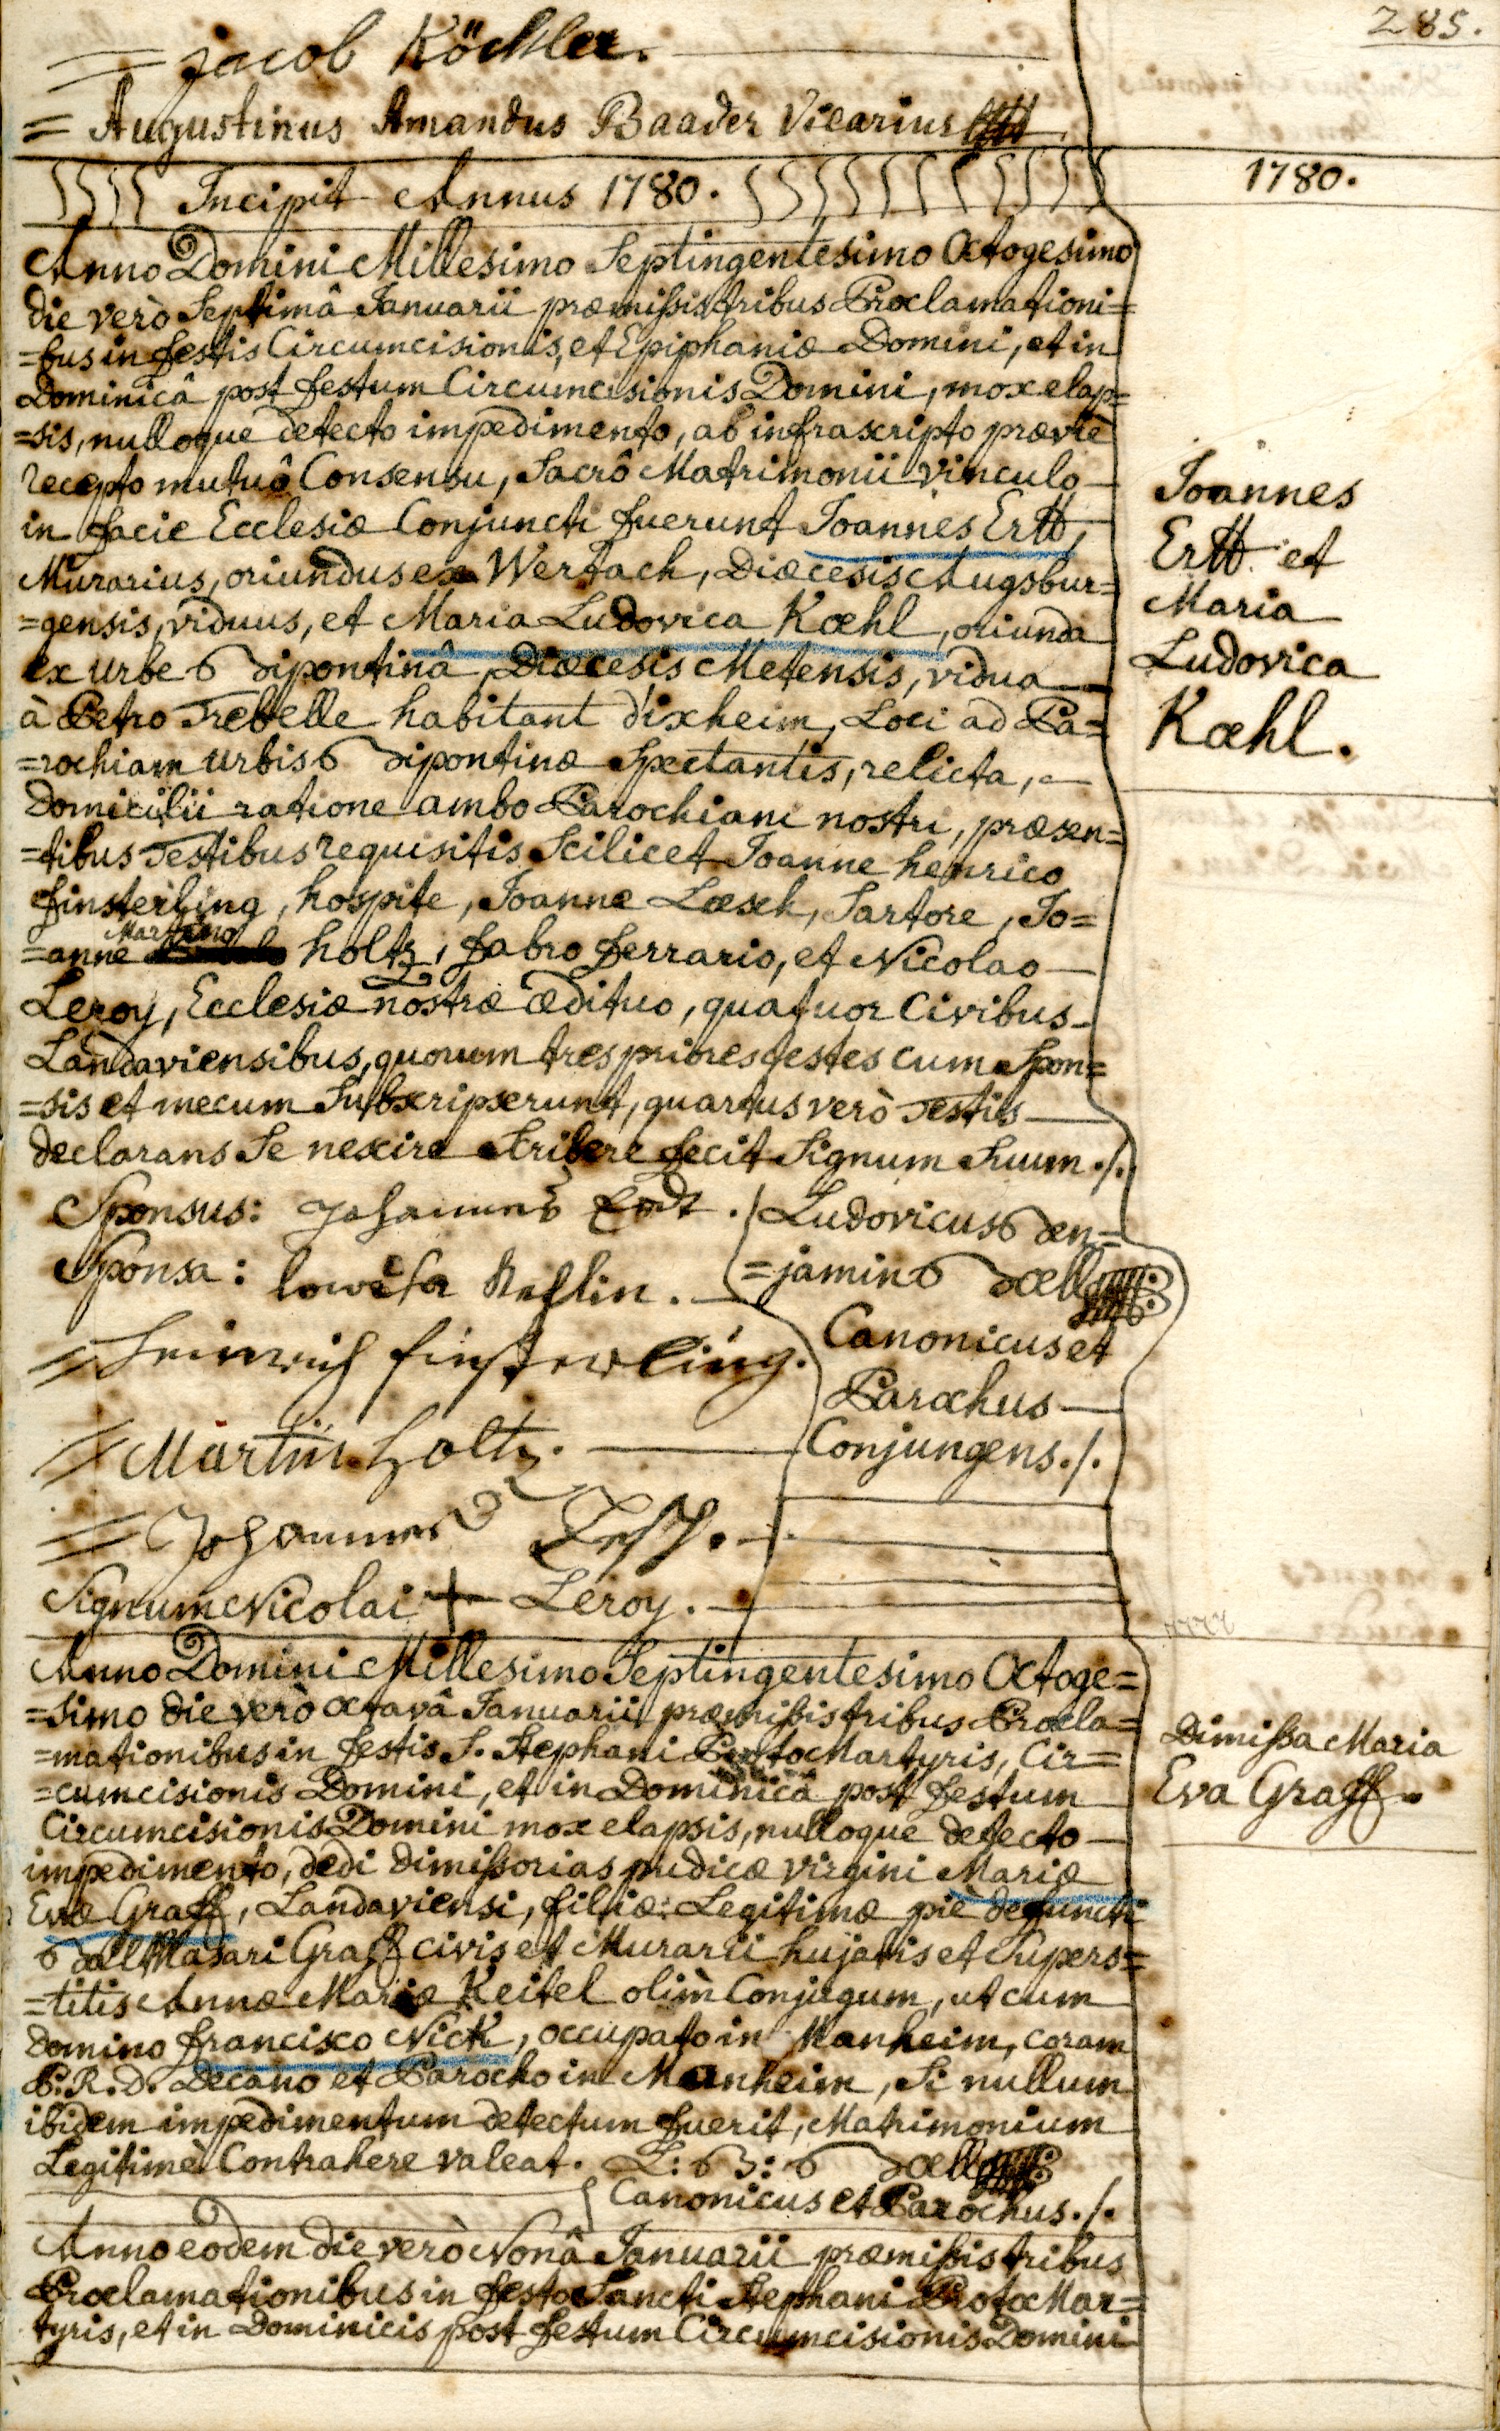 285.
= jacob Köchler.
= Augustinus Amandus Baader Vicarius
Incipit Annus 1780.
1780.
Anno Domini Millesimo Septingentesimo Octogesimo
die verò Septimâ Januarii præmissis tribus Proclamationi=
=bus in festis Circumcisionis, et Epiphaniæ Domini, et in
Dominicâ post festum Circumcisionis Domini, mox elap=
=sis, nulloque detecto impedimento, ab infrascripto prævie
recepto mutuô Consensu, Sacrô Matrimonii vinculo
in facie Ecclesiæ Conjuncti fuerunt Joannes Ertt,
Murarius, oriundus ex Wertach, Diœcesis Augsbur=
=gensis, viduus, et Maria Ludovica Kœhl, oriunda
ex urbe Bipontinâ, Diœcesis Metensis, vidua
à Petro Trebelle habitant d'ixheim, Loci ad Pa=
=rochiam urbis Bipontinæ Spectantis, relicta,
Domicilii ratione ambo Parochiani nostri, præsen=
=tibus Testibus requisitis Scilicet Joanne henrico
finsterling, hospite, Joanne Lœsch, Sartore, Jo=
=anne Martino holtz, fabro ferrario, et Nicolao
Leroy, Ecclesiæ nostræ ædituo, quatuor Civibus
Landaviensibus, quorum tres priores testes cum Spon=
=sis et mecum Subscripserunt, quartus verò Testis
declarans Se nescire Scribere fecit Signum Suum ./.
Joannes
Ertt et
Maria
Ludovica
Kœhl.
Sponsus: Johannes Erdt.
Sponsa: lowisa Keflin.
= Heinrich finsterling.
= Martin holtz.
= Johannes Lesch.
Signum Nicolai + Leroy.
Ludovicus Ben=
=jamin Bœll
Canonicus et
Parochus
Conjungens ./.
Anno Domini Millesimo Septingentesimo Octoge=
=simo die verò octavâ Januarii præmissis tribus Procla=
=mationibus in festis S. Stephani ProtoMartyris, Cir=
=cumcisionis Domini, et in Dominicâ post festum
Circumcisionis Domini mox elapsis, nulloque detecto
impedimento, dedi dimissorias pudicæ virgini Mariæ
Evæ Graff, Landaviensi, filiæ Legitimæ piè defuncti
Balthasari Graff civis et Murarii hujatis et Supers=
=titis Annæ Mariæ Keitel olim Conjugum, ut cum
Domino francisco Nick, occupato in Manheim, coram
P. R. D. Decano et Parocho in Manheim, Si nullum
ibidem impedimentum detectum fuerit, Matrimonium
Legitimè Contrahere valeat. L: B: Bœll
Canonicus et Parochus ./.
Dimissa Maria
Eva Graff.
Anno eodem die verò Nonâ Januarii præmissis tribus
Proclamationibus in festo Sancti Stephani ProtoMar=
tyris, et in Dominicis post festum Circumcisionis Domini